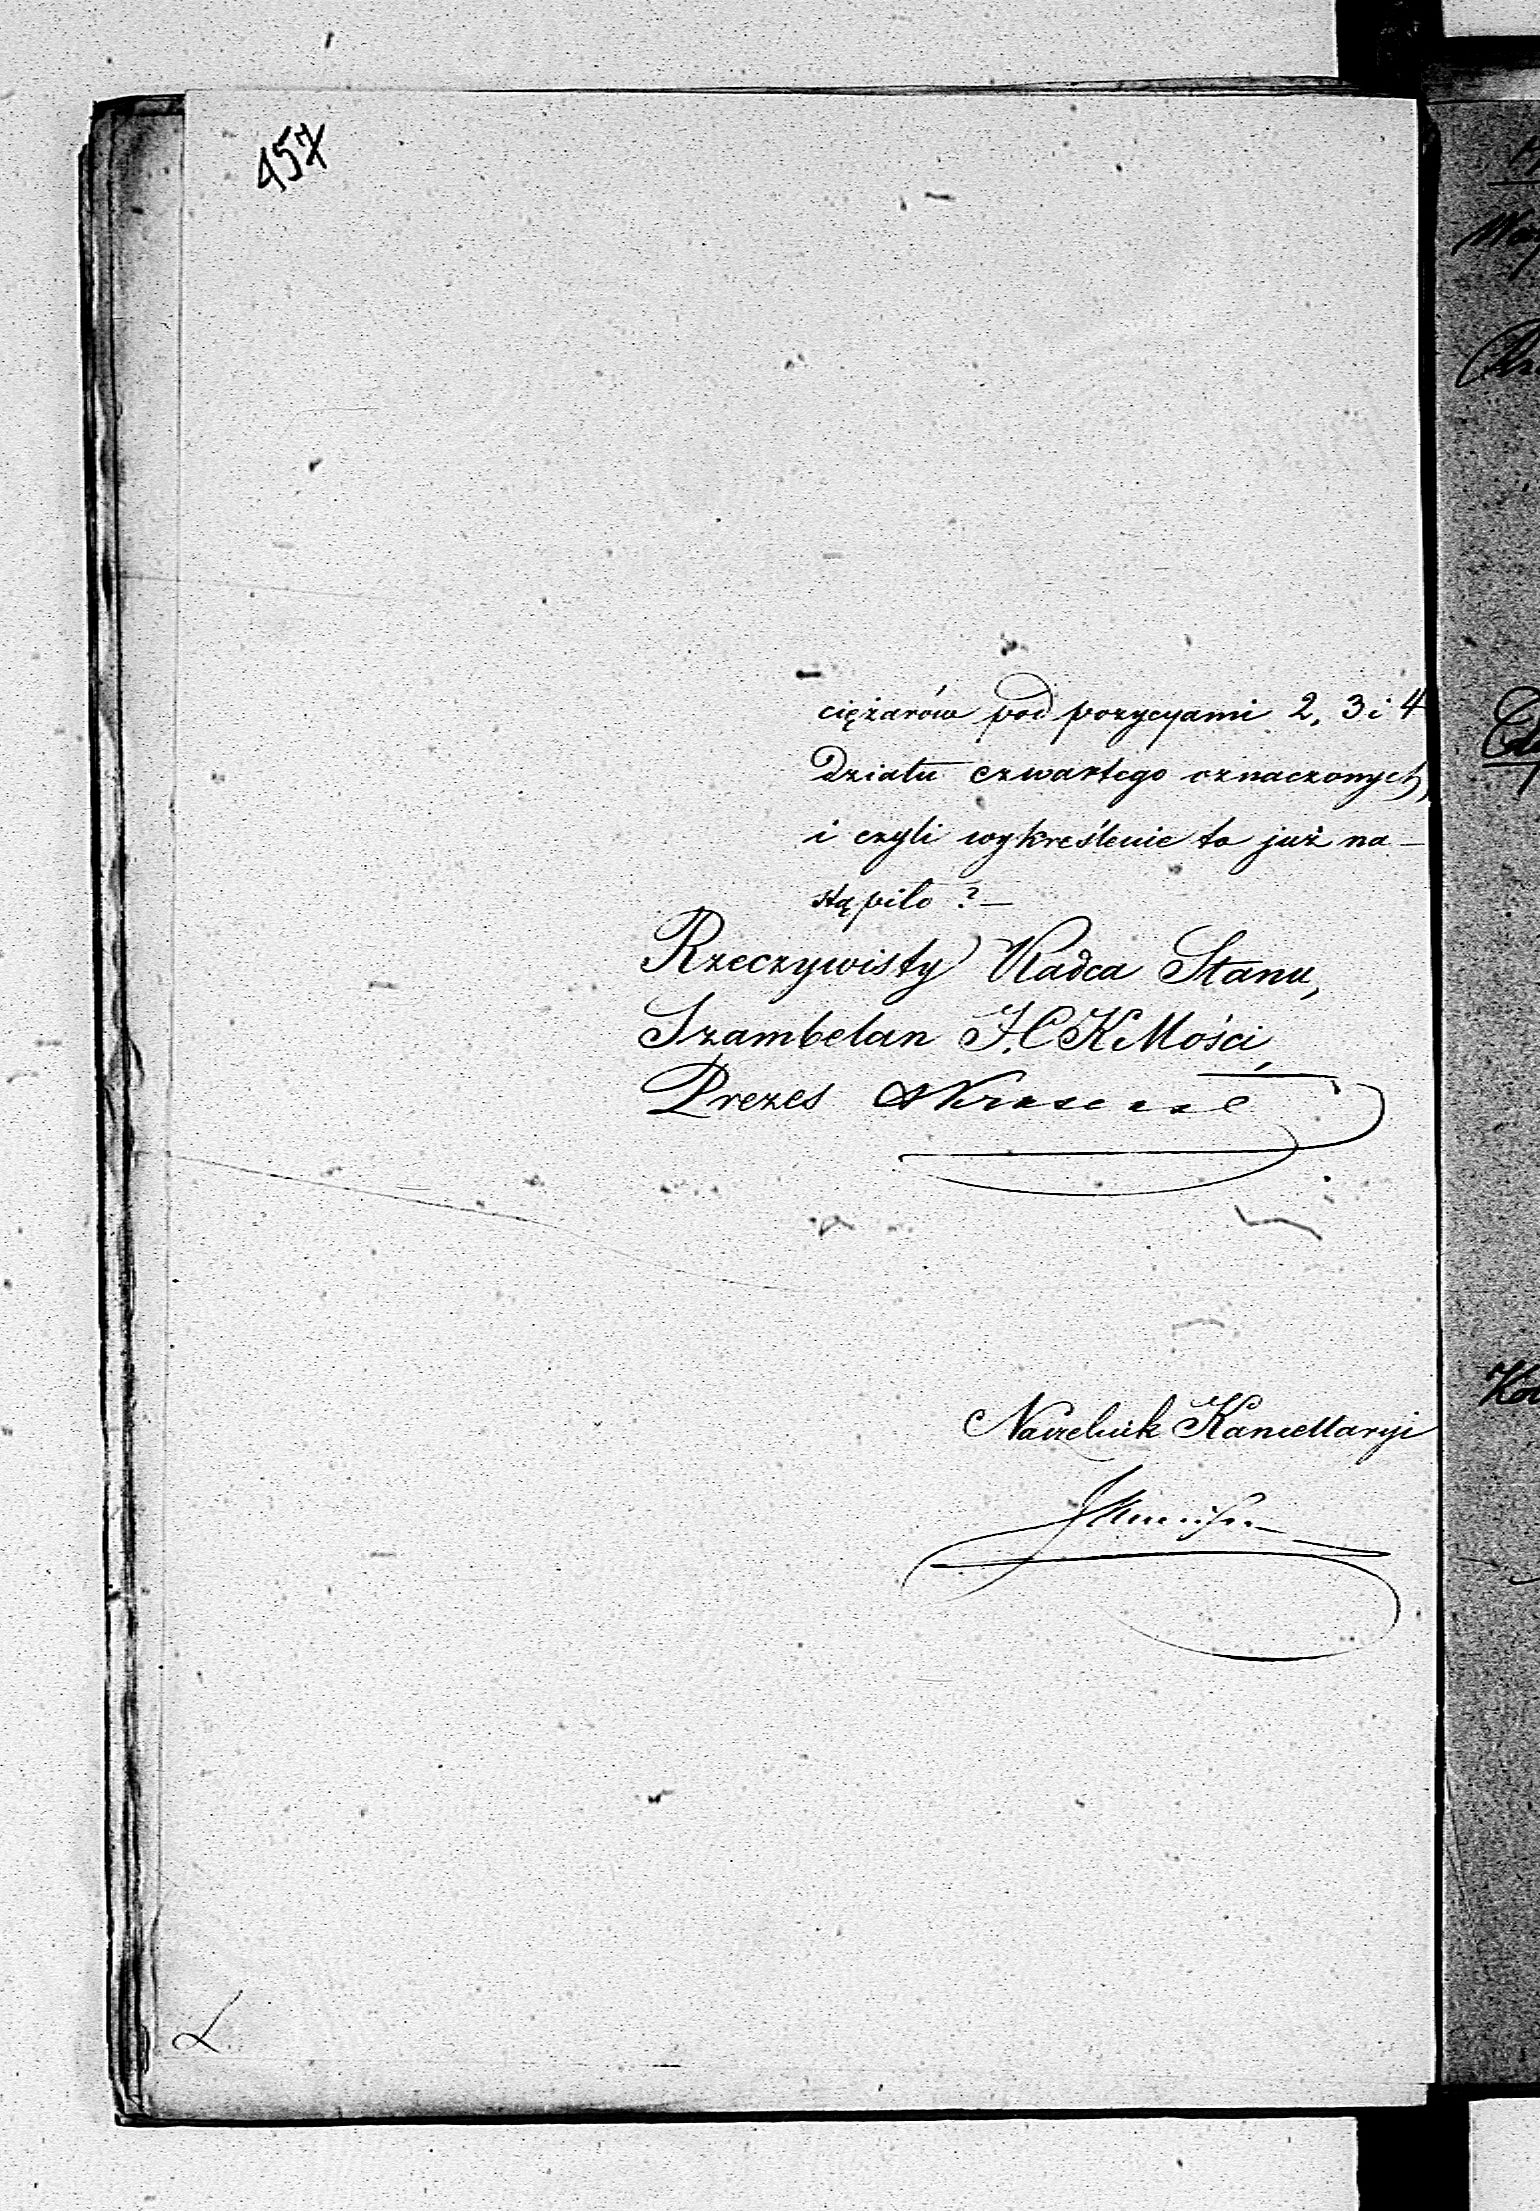 157
ciężarów pod pozycyami 2, 3 i 4
Działu czwartego oznaczonych,
i czyli wykreślenie to już na-
stąpiło ?—
Rzeczywisty Radca Stanu,
Szambelan J. C K Mości,
Prezes
Naczelnik Kancellaryi